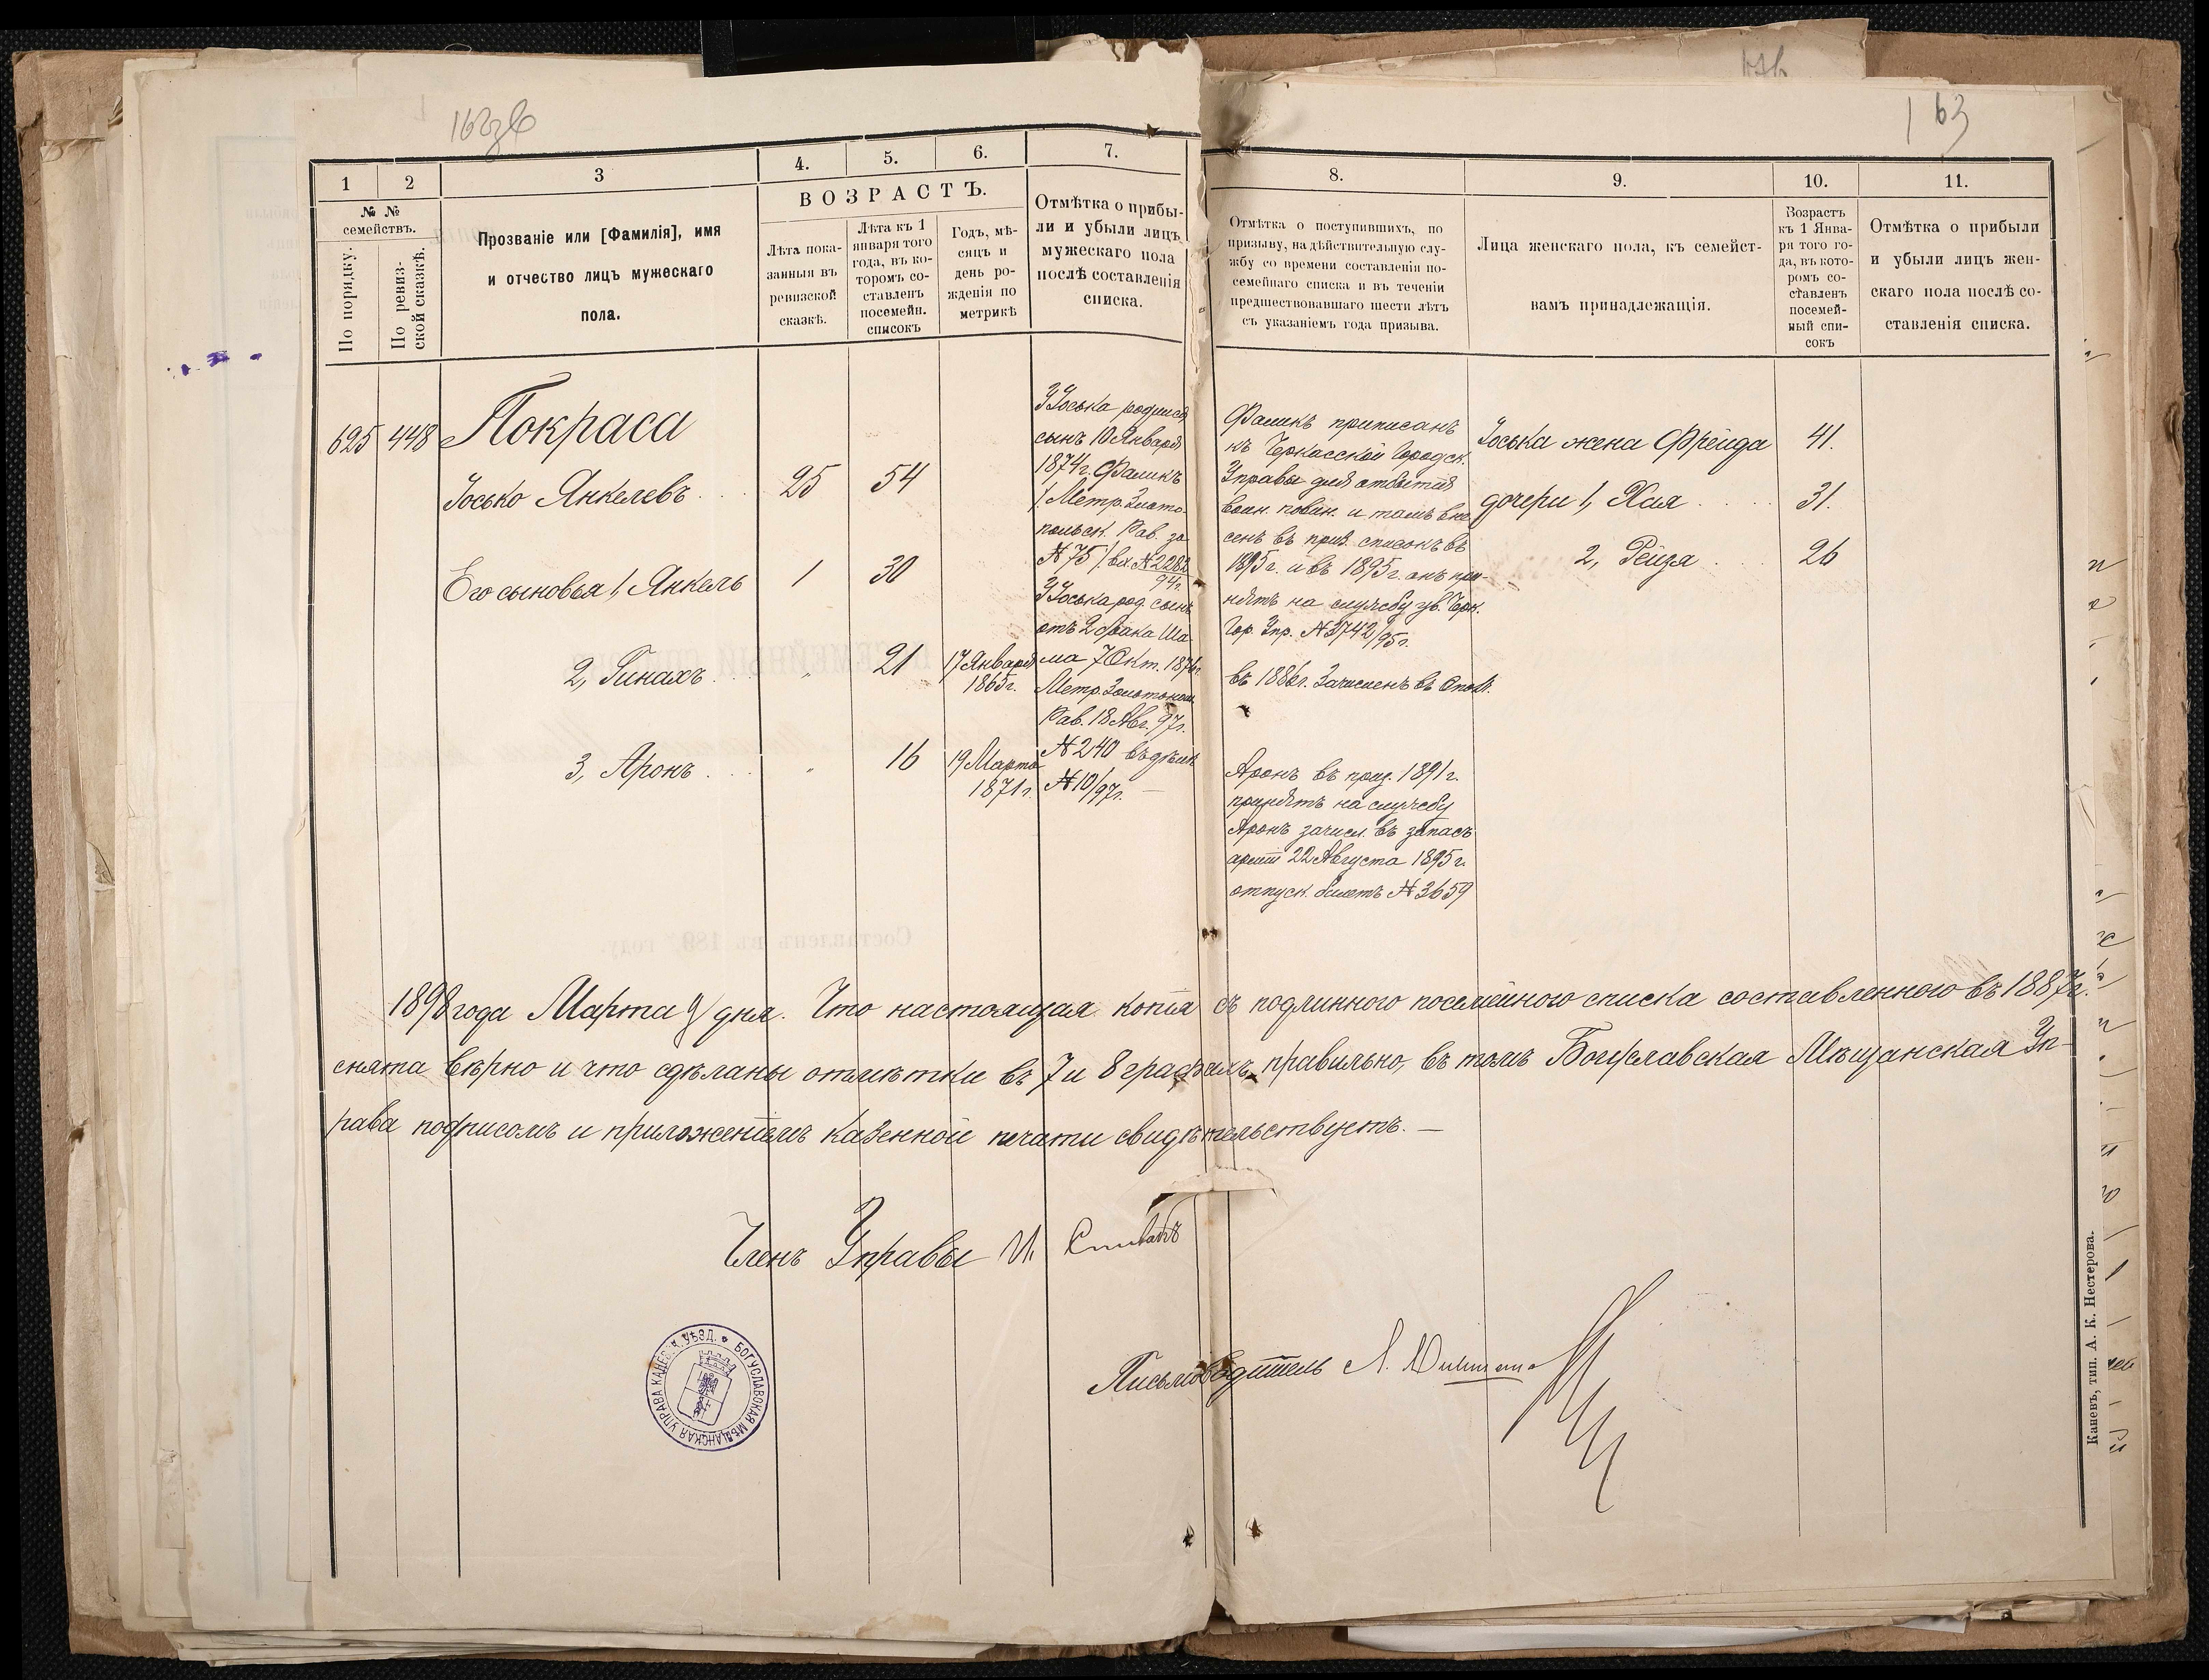 162зв
163
1
2
3
4.
5.
6.
7.
8.
9.
10.
11.
№ №
семействъ.
По порядку.
По ревиз-
ской сказкѣ.
Прозваніе или [Фамилія], имя
и отчество лицъ мужескаго
пола.
ВОЗРАСТЪ.
Лѣта пока-
занныя въ
ревизской
сказкѣ.
Лѣта къ 1
января того
года, въ ко-
торомъ со-
ставленъ
посемейн.
списокъ
Годъ, мѣ-
сяцъ и
день ро-
жденія по
метрикѣ
Отмѣтка о прибы-
ли и убыли лицъ
мужескаго пола
послѣ составленія
списка.
Отмѣтка о поступившихъ, по
призыву, на дѣйствительную слу-
жбу со времени составленія по-
семейнаго списка и въ теченіи
предшествовавшаго шести лѣтъ
съ указаніемъ года призыва.
Лица женскаго пола, къ семейст-
вамъ принадлежащія.
Возрастъ
къ 1 Янва-
ря того го-
да, въ кото-
ромъ со-
ставленъ
посемей-
ный спи-
сокъ
Отмѣтка о прибыли
и убыли лицъ жен-
скаго пола послѣ со-
ставленія списка.
625 448 Покраса
Іосько Янкелевъ 25 54
Его сыновья 1, Янкель 1 30
2, Пинахъ " 21 17 Января
1865 г.
3, Аронъ " 16 19 Марта
1871 г.
У Іоська родился
сынъ 10 Января
1874 г. Фаликъ
/. Метр. Злато-
польск. Рав. за
№ 75 /. вх. № 2282
94 г.
У Іоська род. сынъ
отъ 2 брака Ша-
ма 7 Окт. 1876 г.
Метр. Золотонош.
Рав. 18 Авг. 97 г.
№ 240 въ дѣлѣ
№ 10/97 г. —
Фаликъ приписанъ
къ Черкасской Городск.
Управы для отбытія
воин. повин. и тамъ вне-
сенъ въ приз. списокъ въ
1895 г. и въ 1895 г. онъ при-
нятъ на службу ув. Черк.
Гор. Упр. № 3742/95 г.
въ 1886 г. Зачисленъ въ Ополч.
Аронъ въ приз. 1891 г.
принятъ на службу
Аронъ зачисл. въ запасъ
арміи 22 Августа 1895 г.
отпуск. билетъ № 3659
Іоська жена Фрейда 41.
дочери 1, Хая 31.
2, Рейзя 26
1898 года Марта 9 дня. Что настоящая копія съ подлиннаго посемейного списка составленного въ 1887 г.
снята вѣрно и что сдѣланы отмѣтки въ 7 и 8 графахъ правильно, въ томъ Богуславская Мѣщанская Уп-
рава подписомъ и приложеніемъ казенной печати свидѣтельствуетъ. —
Членъ Управы И. Спивакъ
Письмоводитель Л.
БОГУСЛАВСКАЯ МѢЩАНСКАЯ УПРАВА КАНЕВСК. УѢЗД.
Каневъ, тип. А. К. Нестерова.